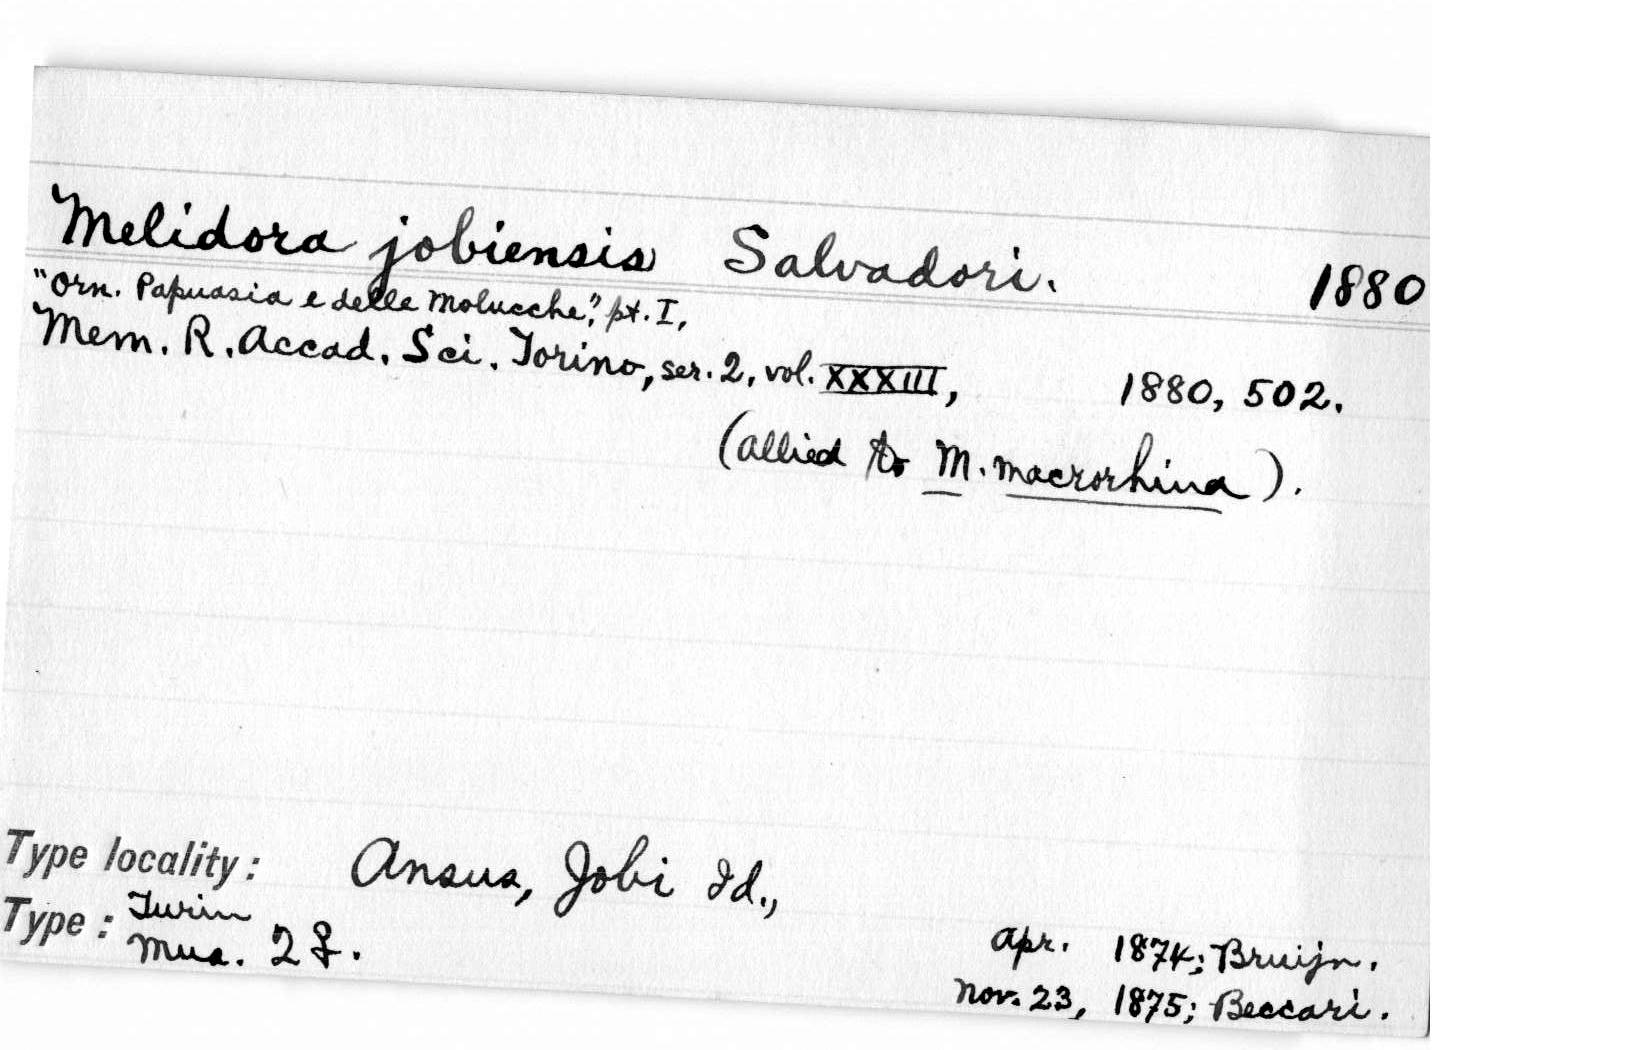 Melidora jobiensis Salvadori. 1880
"Orn. Papuasia e delle Molucche," pt. I,
Mem. R. Accad. Sci. Torino, ser. 2, vol. XXXIII, 1880, 502.
(allied to M. macrorhina).
Type locality: Ansus, Jobi Id.,
Type: Turin
Mus. 2 ♀.
Apr. 1874; Bruijn.
Nov. 23, 1875; Beccari.